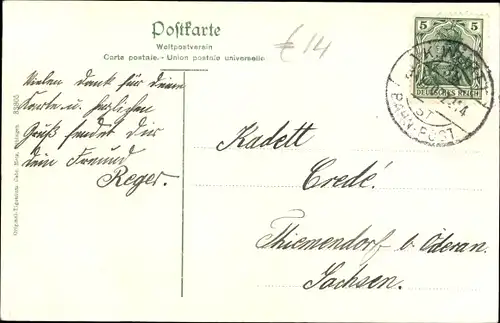 Postkarte
Weltpostverein
Carte postale. - Union postale universelle
€ 14
5 5
DEUTSCHES REICH
BAHN-POST
Vielen Dank für deine
Karte u. herzlichen
Gruß sendet Dir
dein Freund
Reger.
Kadett
Credé.
Thiemendorf b. Oederan.
Sachsen.